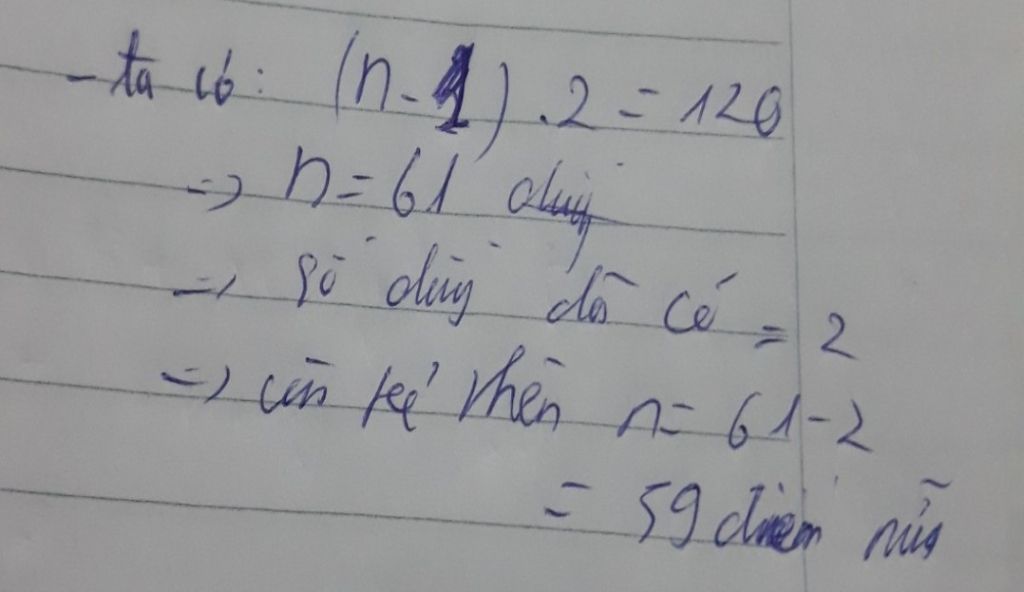 - ta có: (n-1).2 = 120
=> n = 61
=> số đã có = 2
=> cần kẻ thêm n = 61-2
= 59 điểm nữa